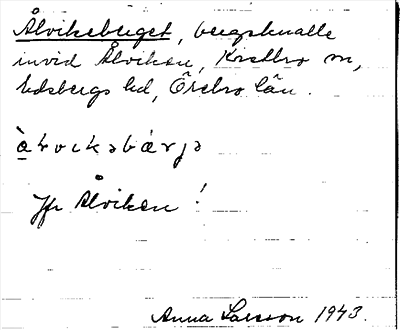 Ålvikeberget, bergsknalle
invid Ålviken, Knstbro sn,
Edsbergs hd, Örebro län.
å̀ɫvɩkəbárjə
Jfr Ålviken!
Anna Larsson 1943.